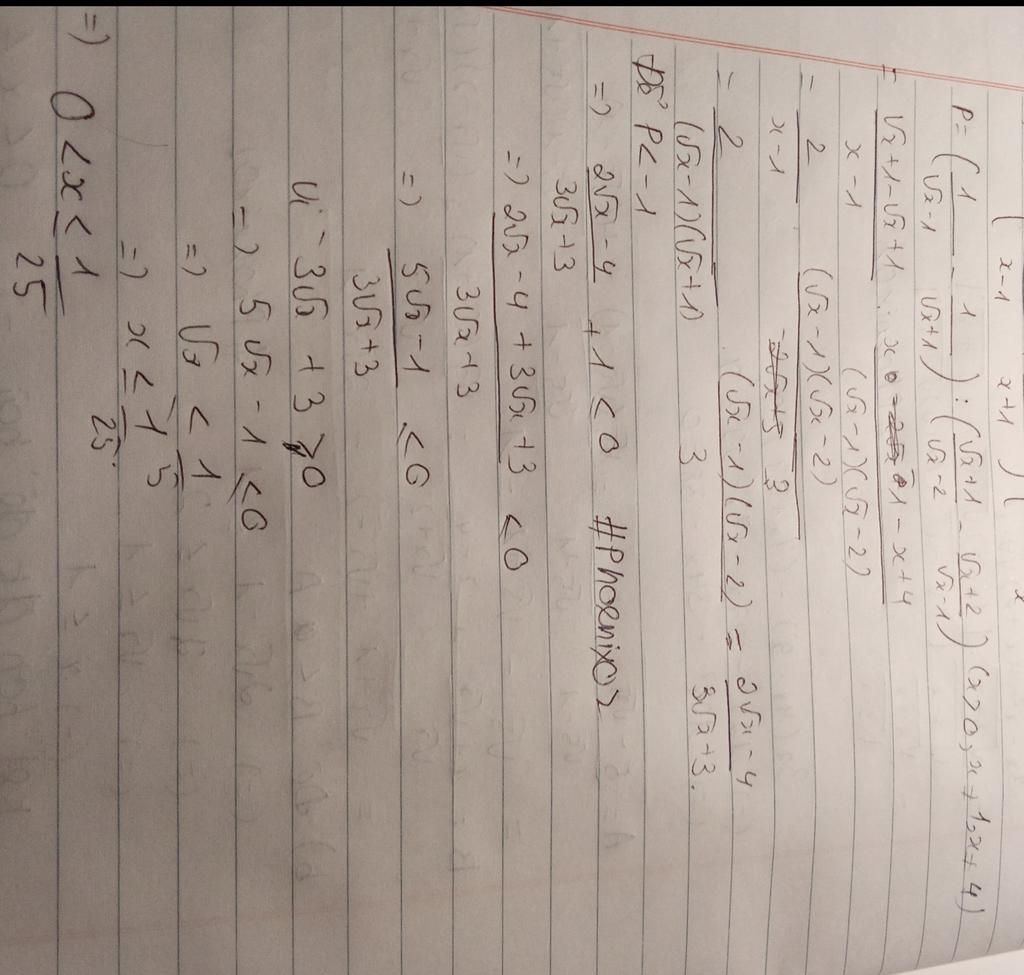 x-1 x+1 ) ( x
P = (1/(√x-1) - 1/(√x+1)) : ((√x+1)/(√x-2) - (√x+2)/(√x-1)) (x>0, x≠1, x≠4)
= (√x+1-√x+1)/(x-1) : (x-1-x+4)/((√x-1)(√x-2))
= 2/(x-1) · (√x-1)(√x-2)/3
= 2/((√x-1)(√x+1)) · (√x-1)(√x-2)/3 = (2√x-4)/(3√x+3).
Để P<-1
=> (2√x-4)/(3√x+3) + 1 < 0 #Phoenix02
=> (2√x-4+3√x+3)/(3√x+3) < 0
=> (5√x-1)/(3√x+3) ≤ 0
Vì 3√x+3 > 0
=> 5√x-1 ≤ 0
=> √x < 1/5
=> x ≤ 1/25.
=> 0 < x ≤ 1/25